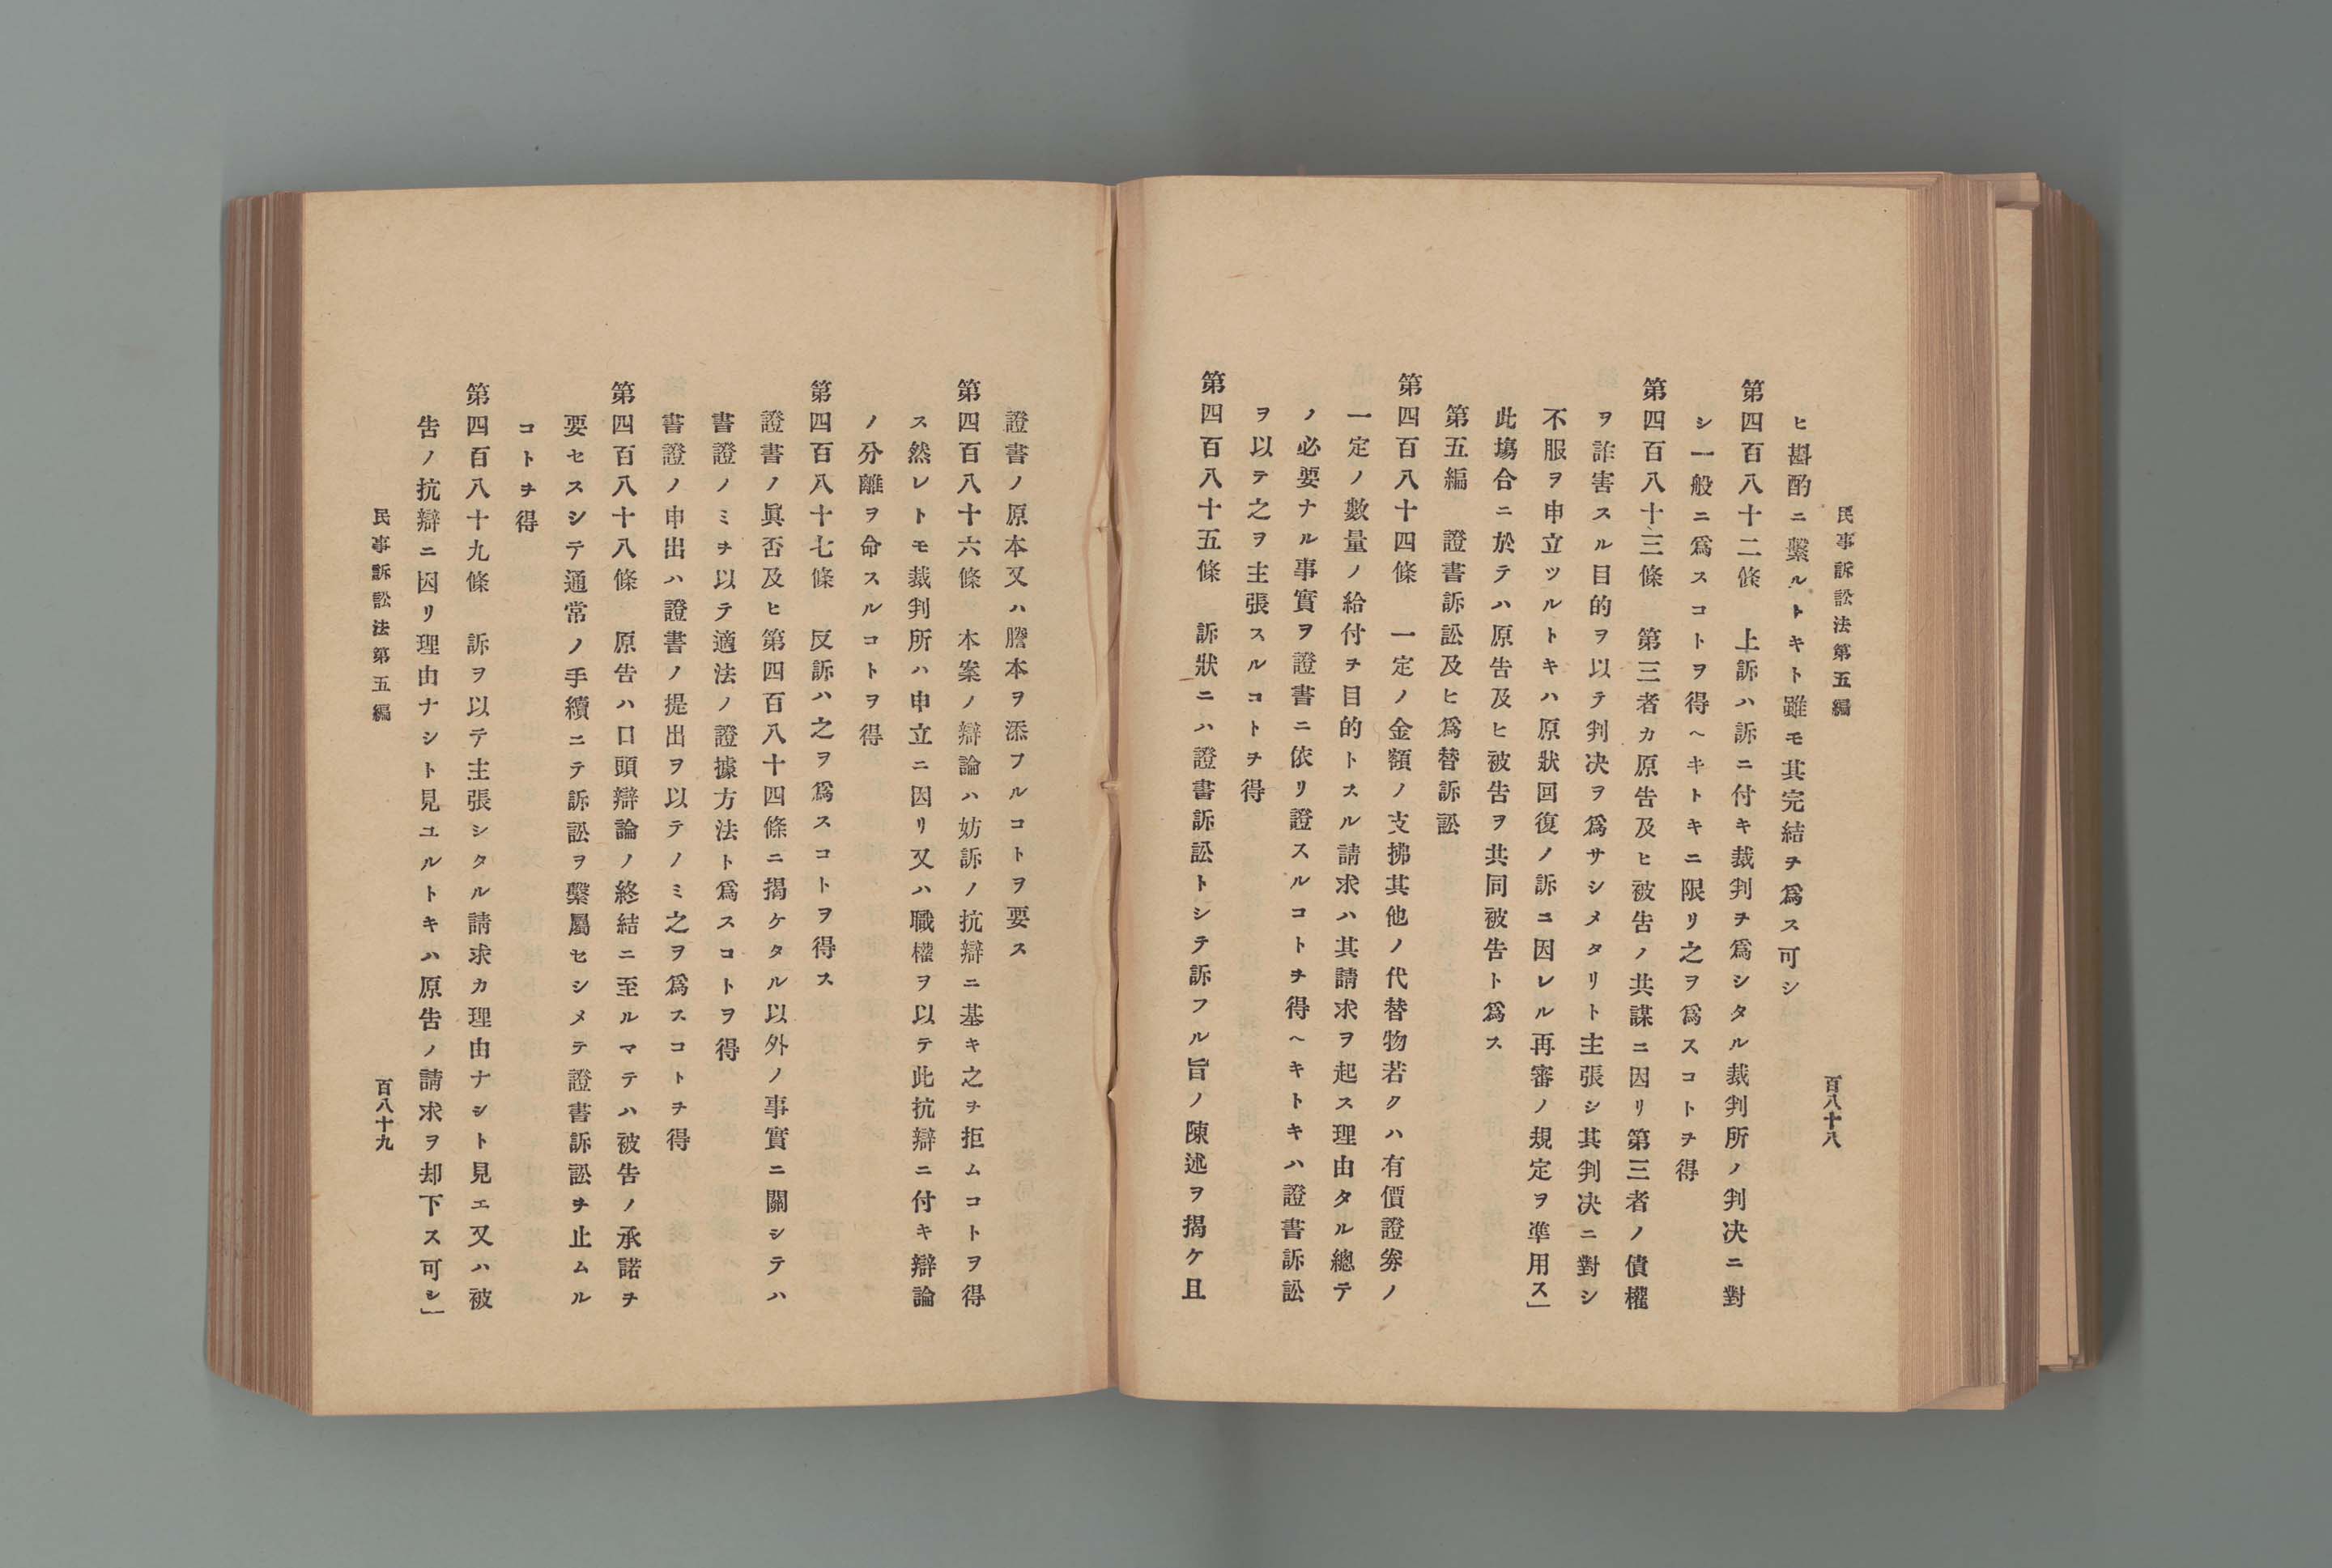 民事訴訟法第五編
百八十八
ヒ斟酌ニ繫ルトキト雖モ其完結ヲ爲ス可シ
第四百八十二條　上訴ハ訴ニ付キ裁判ヲ爲シタル裁判所ノ判决ニ對
シ一般ニ爲スコトヲ得ヘキトキニ限リ之ヲ爲スコトヲ得
第四百八十三條　第三者カ原告及ヒ被告ノ共謀ニ因リ第三者ノ債權
ヲ詐害スル目的ヲ以テ判决ヲ爲サシメタリト主張シ其判决ニ對シ
不服ヲ申立ツルトキハ原狀回復ノ訴ニ因レル再審ノ規定ヲ準用ス」
此塲合ニ於テハ原告及ヒ被告ヲ共同被告ト爲ス
第五編　證書訴訟及ヒ爲替訴訟
第四百八十四條　一定ノ金額ノ支拂其他ノ代替物若クハ有價證劵ノ
一定ノ數量ノ給付ヲ目的トスル請求ハ其請求ヲ起ス理由タル總テ
ノ必要ナル事實ヲ證書ニ依リ證スルコトヲ得ヘキトキハ證書訴訟
ヲ以テ之ヲ主張スルコトヲ得
第四百八十五條　訴狀ニハ證書訴訟トシテ訴フル旨ノ陳述ヲ揭ケ且
證書ノ原本又ハ謄本ヲ添フルコトヲ要ス
第四百八十六條　本案ノ辯論ハ妨訴ノ抗辯ニ基キ之ヲ拒ムコトヲ得
ス然レトモ裁判所ハ申立ニ因リ又ハ職權ヲ以テ此抗辯ニ付キ辯論
ノ分離ヲ命スルコトヲ得
第四百八十七條　反訴ハ之ヲ爲スコトヲ得ス
證書ノ眞否及ヒ第四百八十四條ニ揭ケタル以外ノ事實ニ關シテハ
書證ノミヲ以テ適法ノ證據方法ト爲スコトヲ得
書證ノ申出ハ證書ノ提出ヲ以テノミ之ヲ爲スコトヲ得
第四百八十八條　原告ハ口頭辯論ノ終結ニ至ルマテハ被告ノ承諾ヲ
要セスシテ通常ノ手續ニテ訴訟ヲ繫屬セシメテ證書訴訟ヲ止ムル
コトヲ得
第四百八十九條　訴ヲ以テ主張シタル請求カ理由ナシト見エ又ハ被
告ノ抗辯ニ因リ理由ナシト見ユルトキハ原告ノ請求ヲ却下ス可シ」
民事訴訟法第五編
百八十九